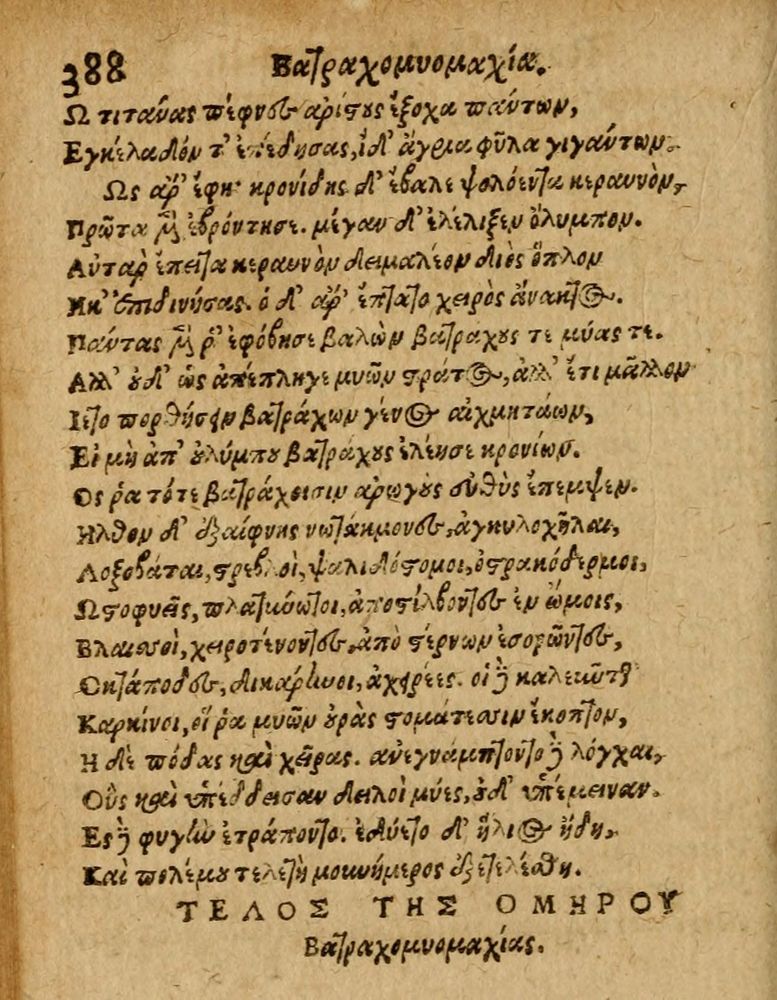 388 Βατραχομυομαχία.
Ω τιτᾶνας πέφνες ἀρίστους ἔξοχα πάντων,
Εγκέλαδόν τ' ἐπέδησας, ἰδ' ἄγρια φῦλα γιγάντων.
Ως ἄρ' ἔφη· κρονίδης δ' ἔβαλε ψολόεντα κεραυνὸν,
Πρῶτα μὲν ἐβρόντησε. μέγαν δ' ἐλέλιξεν ὄλυμπον.
Αὐτὰρ ἔπειτα κεραυνὸν δειμαλέον διὸς ὅπλον
Ηκ' ἐπιδινήσας. ὁ δ' ἄρ' ἔπτατο χειρὸς ἄνακτος.
Πάντας μὲν ῥ' ἐφόβησε βαλὼν βατράχους τε μύας τε.
Αλλ' οὐδ' ὣς ἀπέπληγε μυῶν στρατὸς, ἀλλ' ἔτι μᾶλλον
Ιετο πορθήσειν βατράχων γένος αἰχμητάων,
Εἰ μὴ ἀπ' οὐλύμπου βατράχους ἐλέησε κρονίων.
Ος ῥα τότε βατράχοισιν ἀρωγοὺς εὐθὺς ἔπεμψεν.
Ηλθον δ' ἐξαίφνης νωτάκμονες, ἀγκυλοχῆλαι,
Λοξοβάται, στρεβλοὶ, ψαλιδόστομοι, ὀστρακόδερμοι,
Ωστοφυεῖς, πλατυνώτοι, ἀποστίλβοντες ἐν ὤμοις,
Βλαισοὶ, χειροτένοντες, ἀπὸ στέρνων ἐσορῶντες,
Οκτάποδες, δικάρηνοι, ἀχειρέες. οἱ δὲ καλεῦνται
Καρκίνοι, οἵ ῥα μυῶν οὐρὰς στομάτεσσιν ἔκοπτον,
Η δὲ πόδας καὶ χεῖρας. ἀνεγνάμπτοντο δὲ λόγχαι,
Οὓς καὶ ὑπέδδεισαν δειλοὶ μύες, οὐδ' ὑπέμειναν.
Ες δὲ φυγὴν ἐτράποντο. ἐδύετο δ' ἥλιος ἤδη,
Καὶ πολέμου τελετὴ μονήμερος ἐξετελέσθη.
ΤΕΛΟΣ ΤΗΣ ΟΜΗΡΟΥ
Βατραχομυομαχίας.